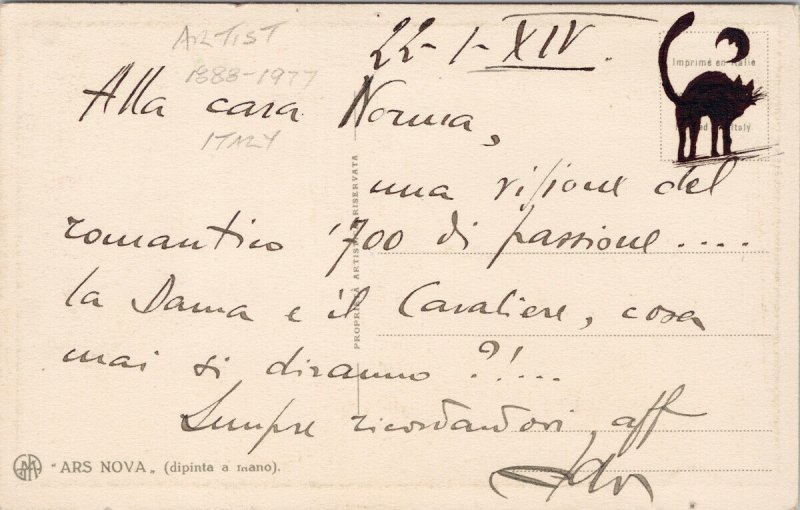 ARTIST
1888-1977
ITALY
22-1-XIV.
Imprimé en Italie
Italy
Alla cara Norma,
una visione del
romantico '700 di passione....
la Dama e il Cavaliere, cosa
mai si diranno ?!....
Sempre ricordandovi aff
PROPRIETÀ ARTISTICA RISERVATA
"ARS NOVA" (dipinta a mano).